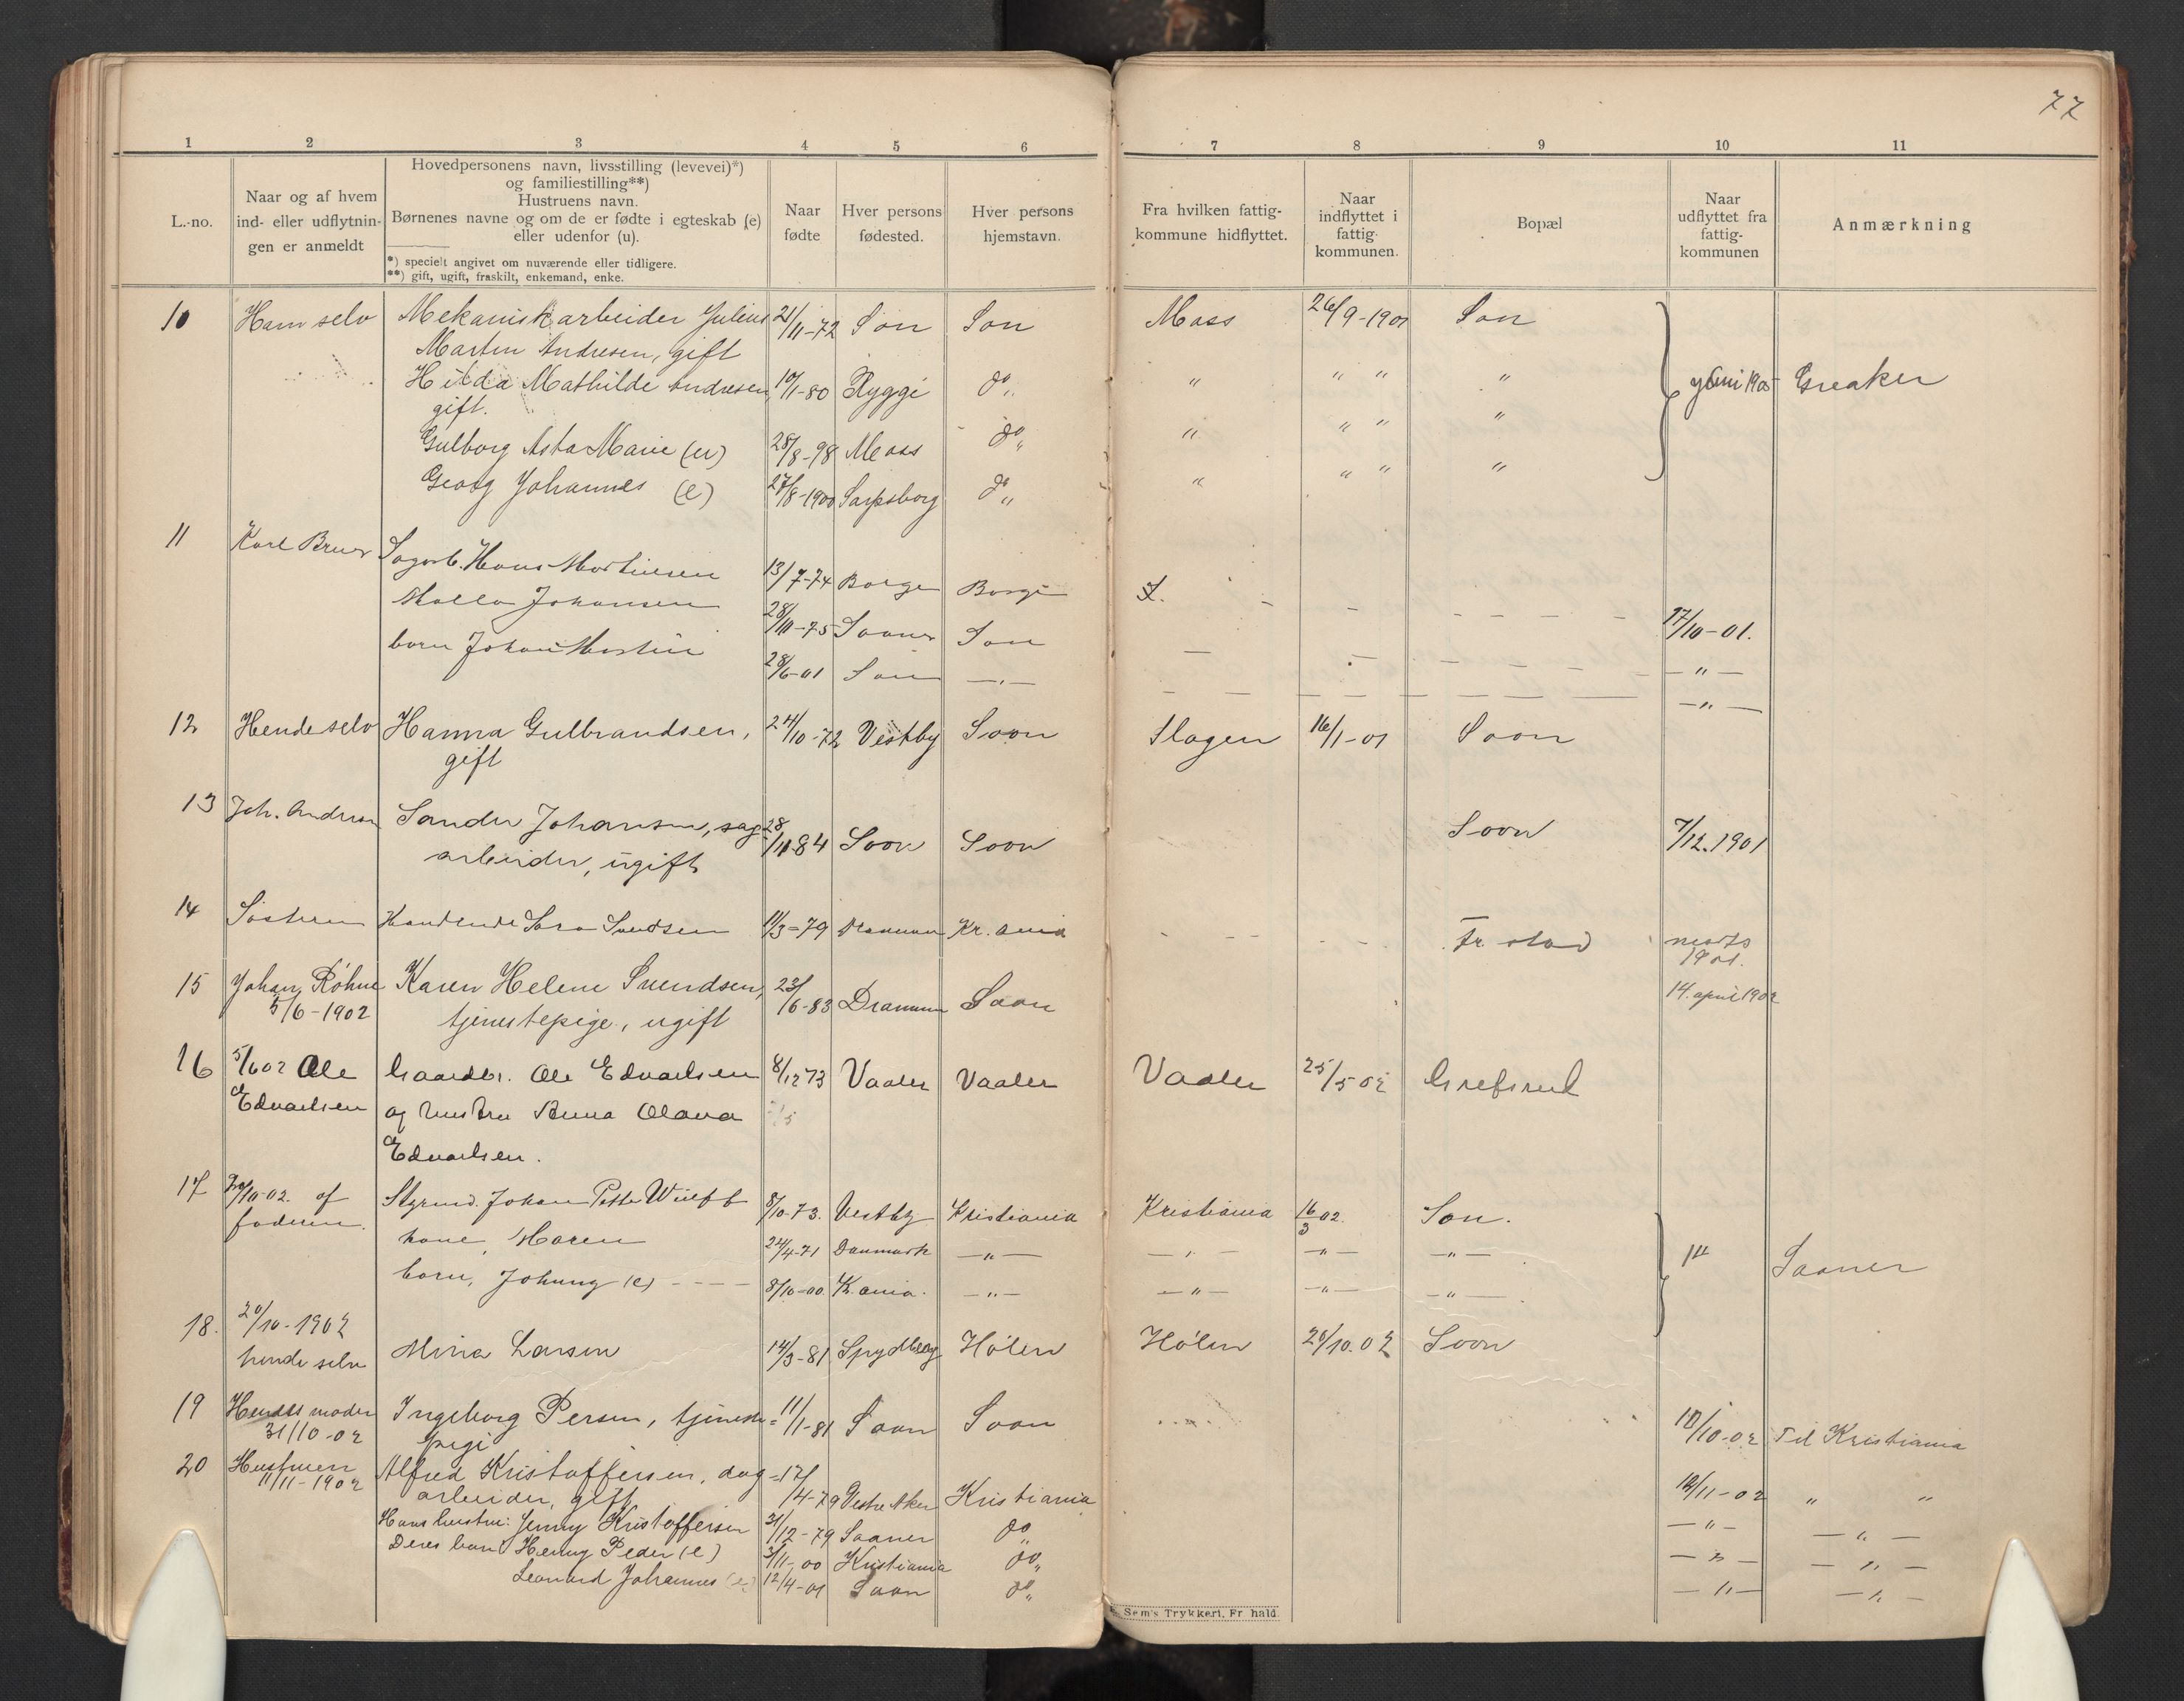 77
1 2 3 4 5 6 7 8 9 10 11
L.-no.
Naar og af hvem
ind- eller udflytnin-
gen er anmeldt
Hovedpersonens navn, livsstilling (levevei)*)
og familiestilling**)
Hustruens navn.
Børnenes navne og om de er fødte i egteskab (e)
eller udenfor (u).
*) specielt angivet om nuværende eller tidligere.
**) gift, ugift, fraskilt, enkemand, enke.
Naar
fødte
Hver persons
fødested.
Hver persons
hjemstavn.
Fra hvilken fattig-
kommune hidflyttet.
Naar
indflyttet i
fattig-
kommunen.
Bopæl
Naar
udflyttet fra
fattig-
kommunen
Anmærkning
10 Ham selv Mekanisk arbeider Julius 21/11-72 Son Son Moss 26/9-1901 Son
Martin Andresen, gift
Hilda Mathilde Andresen, 10/1-80 Rygge do „ " " " " Juni 1905 Greaker
gift.
Gulborg Asta Marie (u) 28/8-98 Moss do „ " " " "
Georg Johannes (e) 27/8-1900 Sarpsborg do „ " " " "
11 Karl Bruer Sagarb. Hans Martinsen 13/7-74 Borge Borge
Johansen 28/10-75 Saaner Son 17/10-01.
barn Johan Martin 28/6-01 Son — „ — — „ —
— „ —
12 Hende selv Hanna Gulbrandsen, 24/10-72 Vestby Soon Slagen 16/1-01 Soon
gift
13 Joh. Andersen Sander Johansen, sag- 28/11-84 Soon Soon Soon 7/12.1901
arbeider, ugift
14 Søsteren Sara Svendsen 11/3-79 Drammen Kr.ania Fr.stad marts
1901.
15 Johan Røhne Karen Helene Svendsen, 23/6-83 Drammen Soon 14. april 1902
5/6-1902 tjenestepige, ugift
16 5/6 02 Ole Gaardbr. Ole Edvardsen 8/12 73 Vaaler Vaaler Vaaler 25/5 02 Grefsrud
Edvardsen og hustru Anna Olava
Edvardsen.
17 20/10-02. af Styrmd. Johan Petter Wulff 8/10-73. Vestby Kristiania Kristiania 16/3 02. Son.
faderen. kone, Maren 24/4-71 Danmark — „ — — „ — — „ — — „ — 14 Saaner
barn, Johung (e) - - - - 8/10-00 K.ania. — „ — — „ — — „ — — „ —
18. 20/10-1902
hende selv Mina Larsen 14/3-81 Spydeberg Hølen Hølen 20/10.02 Soon
19 Hendes moder Ingeborg Persen, tjeneste- 11/1-81 Soon Soon 10/10-02 Til Kristiania
31/10-02 pige
20 Hustruen Alfred Kristoffersen, dag- 17/4-79 Vestre Aker Kristiania 12/11-02 " "
11/11-1902 arbeider, gift
Hans hustru: Jenny Kristoffersen 21/12-79 Saaner do „ — „ — — „ —
Deres barn Henry Peder (e) 3/11-00 Kristiania do „ — „ — — „ —
Leonard Johannes (e) 12/4-01 Soon do „ — „ — — „ —
E. Sem's Trykkeri, Fr. hald.